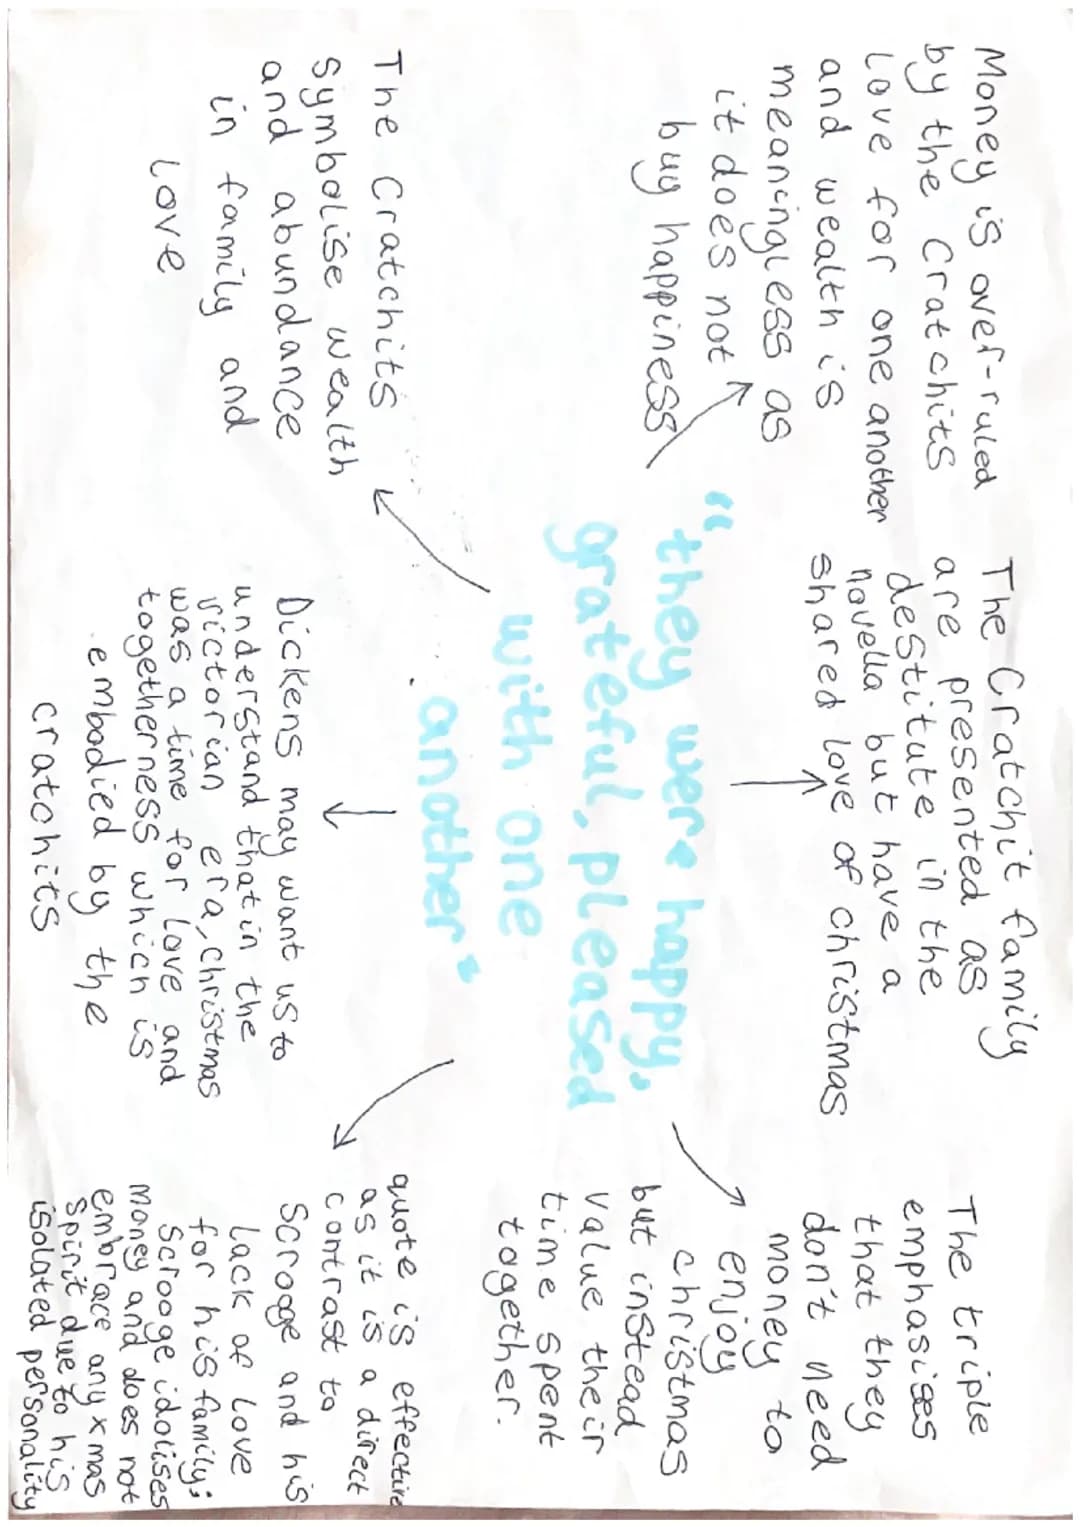 Money is over-ruled
by the Cratchits
love for one another
and wealth is
meaningless as
it does not
buy happiness
The Cratchit family
are presented as
destitute in the
novella but have a
shared love of christmas
The triple
emphasises
that they
don't need
money to
enjoy
christmas
but instead
value their
time spent
together.
"they were happy,
grateful, pleased
with one
another"
The Cratchits
symbolise wealth
and abundance
in family and
love
Dickens may want us to
understand that in the
victorian era, christmas
was a time for love and
togetherness which is
embodied by the
cratchits
quote is effective
as it is a direct
contrast to
Scrooge and his
lack of love
for his family;
Scrooge idolises
money and does not
embrace any xmas
spirit due to his
isolated personality